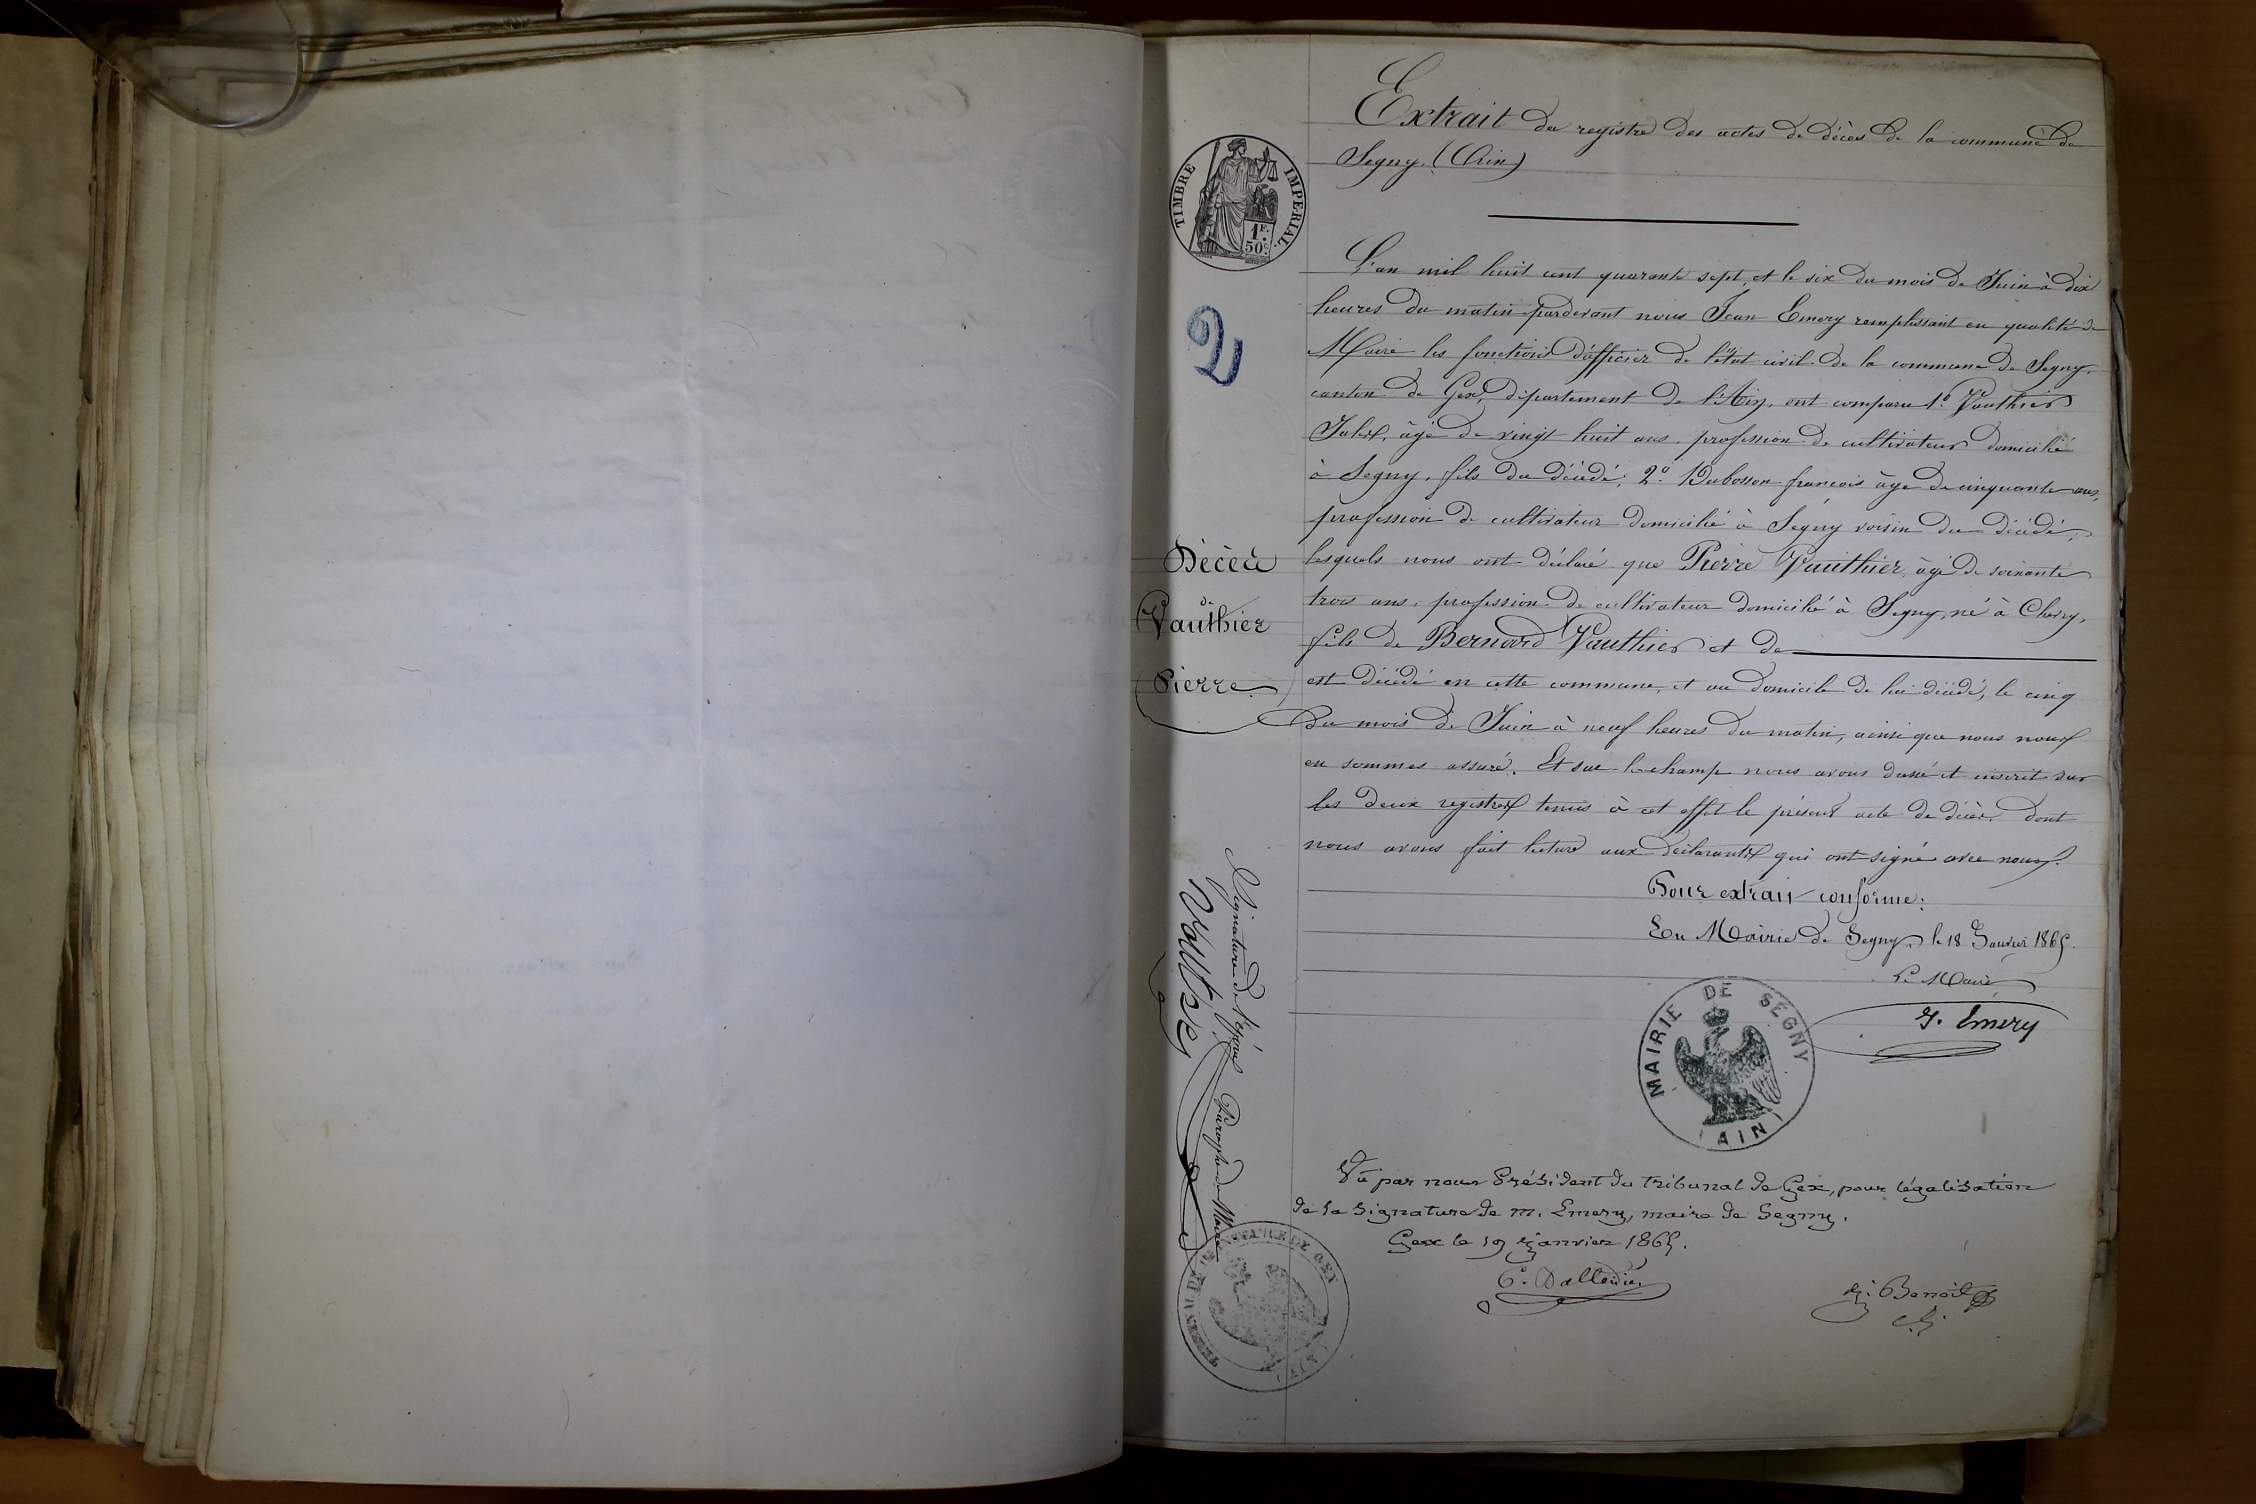 Extrait du registre des actes de décès de la commune de
Segny. (Ain)
TIMBRE IMPERIAL.
1F.
50c.
2
L'an mil huit cent quarante sept, et le six du mois de Juin à dix
heures du matin pardevant nous Jean Emery remplissant en qualité de
Maire les fonctions d'officier de l'état civil de la commune de Segny,
canton de Gex, département de l'Ain, ont comparu 1º Vauthier
Jules, âgé de vingt huit ans, profession de cultivateur domicilié
à Segny, fils du décédé; 2º Dubosson françois âgé de cinquante ans,
profession de cultivateur domicilié à Segny voisin du décédé,
lesquels nous ont déclaré que Pierre Vauthier, âgé de soixante
trois ans, profession de cultivateur domicilié à Segny, né à Chevry,
fils de Bernard Vauthier et de
est décédé en cette commune, et au domicile de lui décédé, le cinq
du mois de Juin à neuf heures du matin, ainsi que nous nous
en sommes assuré. Et sur le champ nous avons dressé et inscrit sur
les deux registres tenus à cet effet le présent acte de décès. Dont
nous avons fait lecture aux déclarants qui ont signé avec nous.
Décès
de
Vauthier
Pierre
Pour extrait conforme:
En Mairie de Segny, le 18 Janvier 1865.
Le Maire
J. Emery
MAIRIE DE SÉGNY
(AIN)
Signature de l'époux
Vautier
Paraphe du Maire
Vû par nous Président du tribunal de Gex, pour légalisation
de la signature de m. Emery, maire de Segny.
Gex le 19 janvier 1865.
Benoit
TRIBUNAL DE 1ere INSTANCE DE GEX
(AIN)